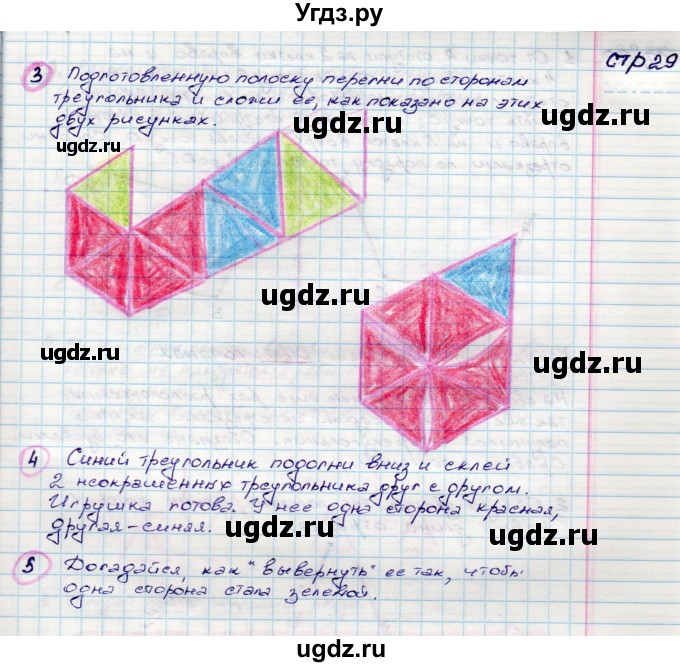 Угдз.ру
стр 29
3 Подготовленную полоску перегни по сторонам
треугольника и сложи ее, как показано на этих
двух рисунках.
ugdz.ru
ugdz.ru
ugdz.ru
ugdz.ru
ugdz.ru
ugdz.ru
ugdz.ru
4 Синий треугольник подогни вниз и склей
2 неокрашенных треугольника друг с другом.
Игрушка готова. У нее одна сторона красная,
другая - синяя.
ugdz.ru
ugdz.ru
5 Догадайся, как "вывернуть" ее так, чтобы
одна сторона стала зеленой.
ugdz.ru
ugdz.ru